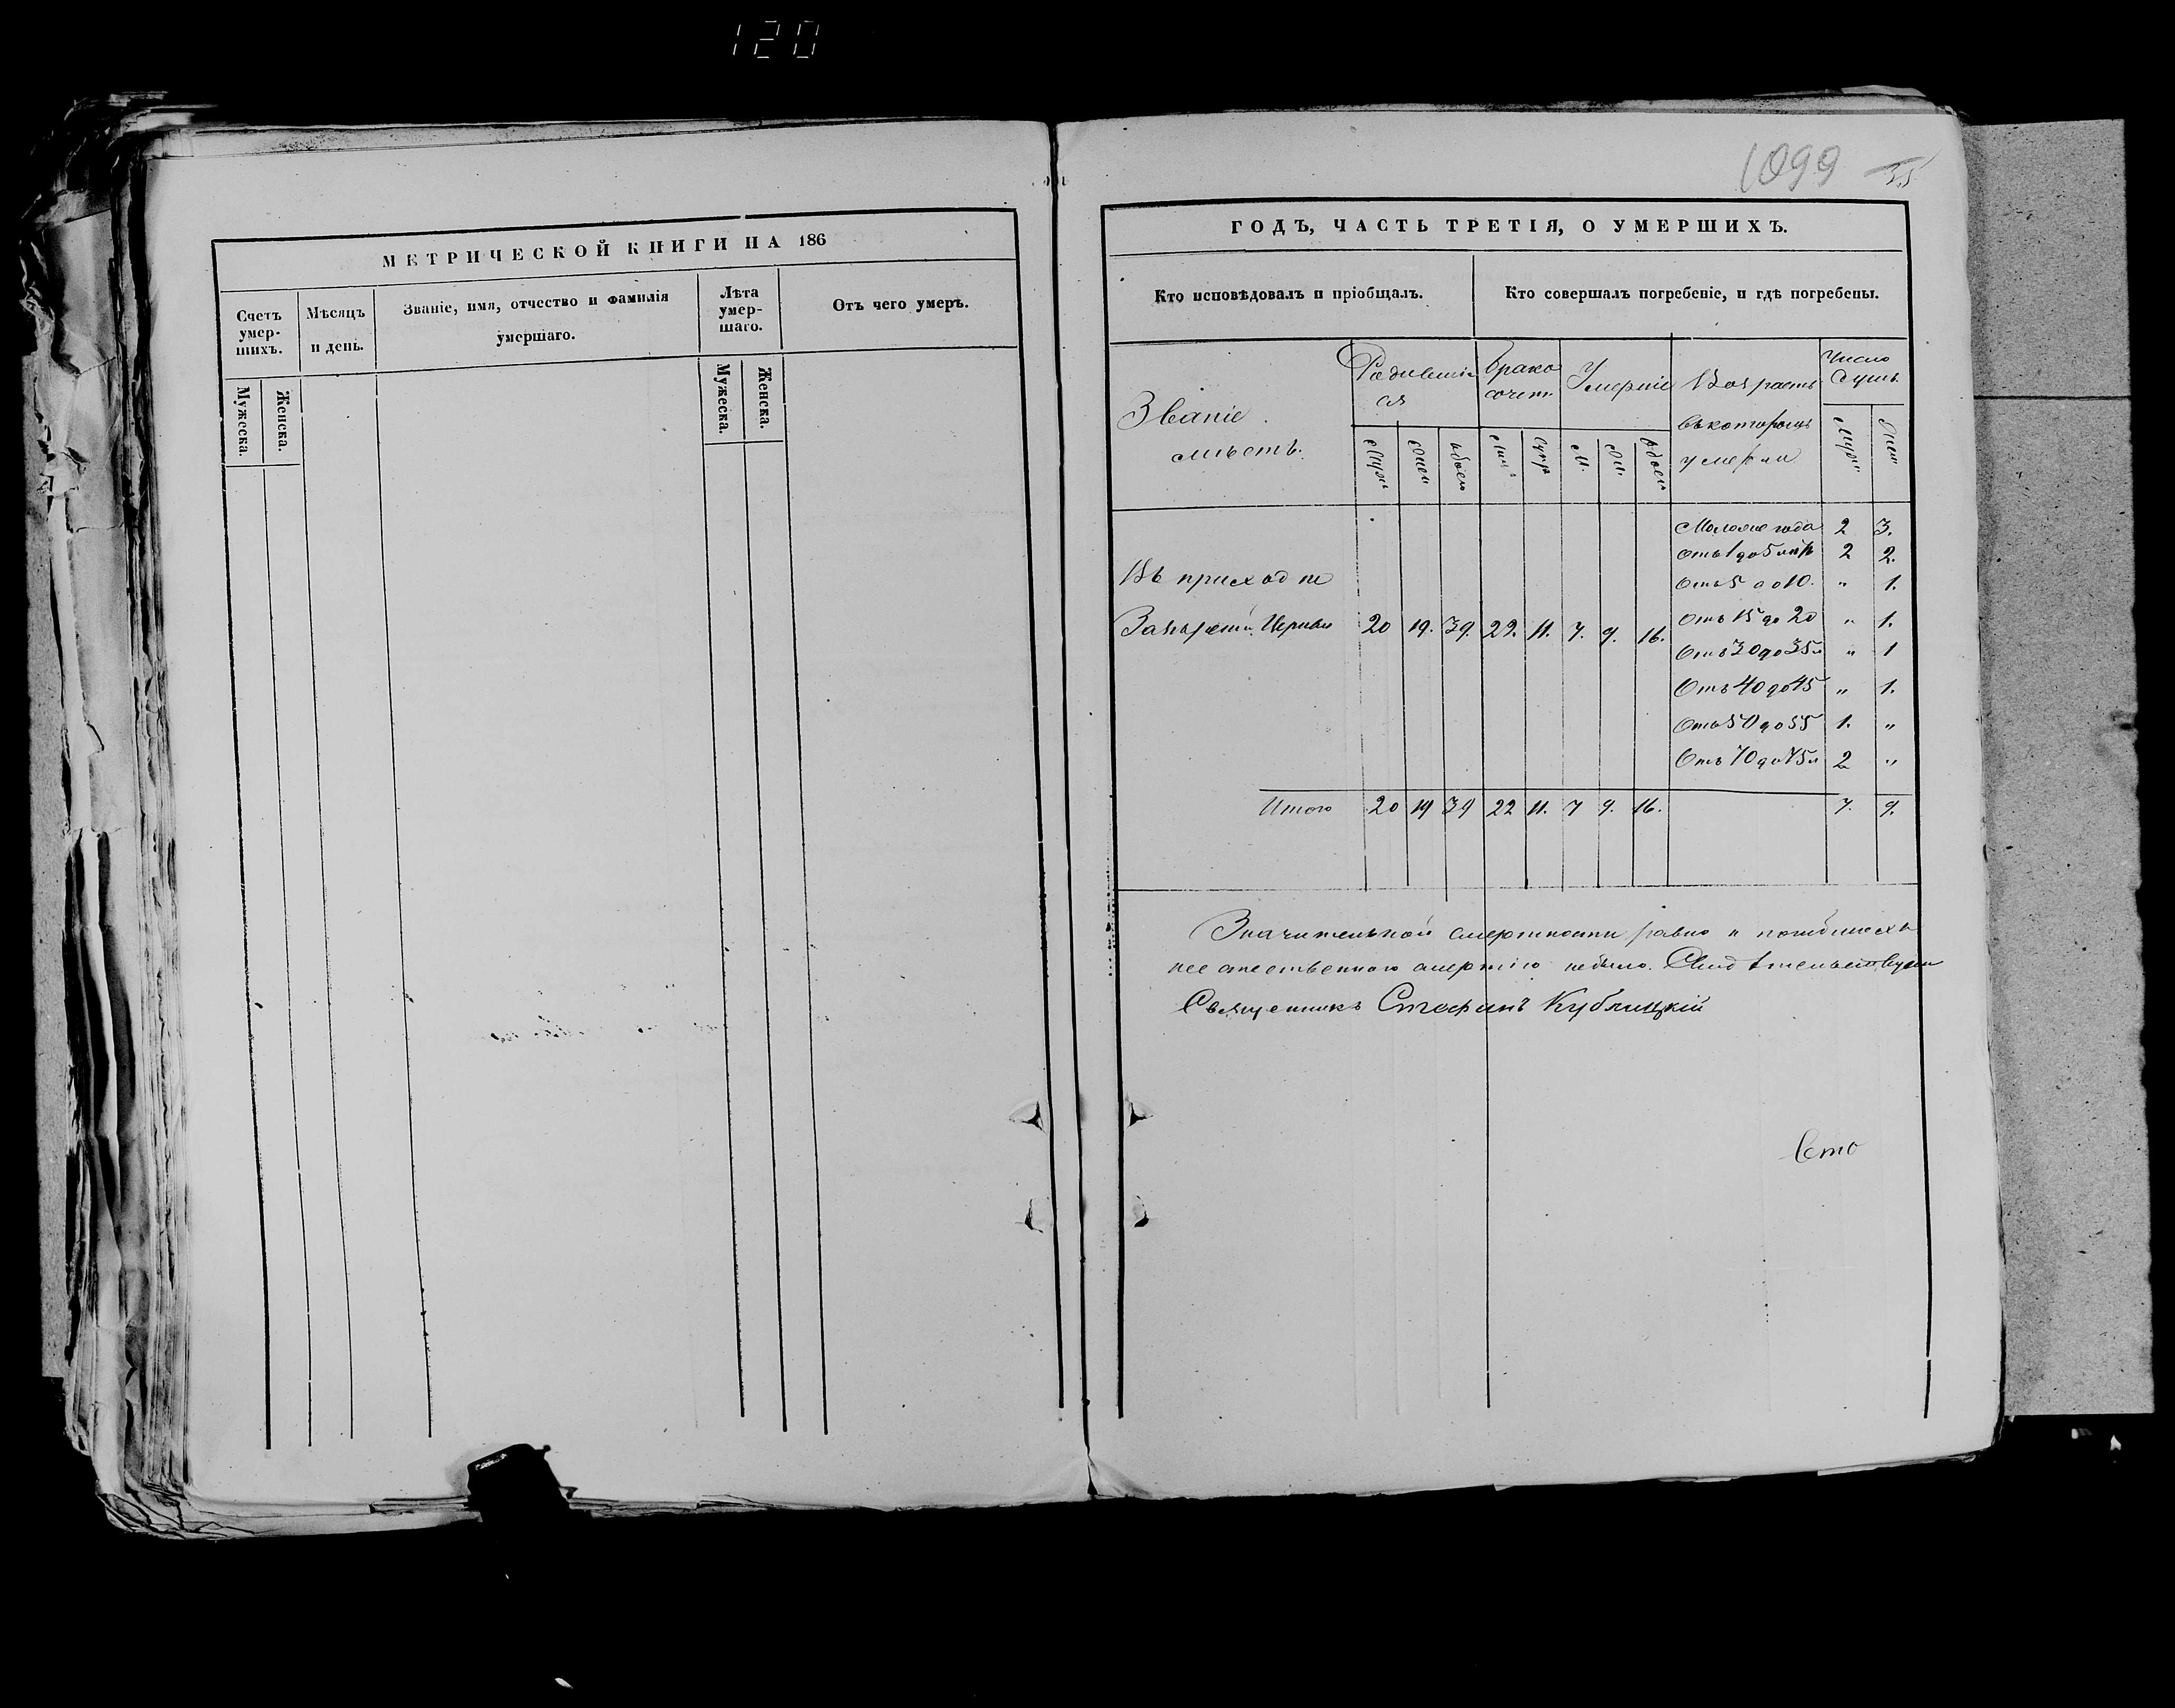 120
МЕТРИЧЕСКОЙ КНИГИ НА 186
Счетъ умер-шихъ.
Мѣсяцъ и день.
Званіе, имя, отчество и фамилія умершаго.
Лѣта умер-шаго.
Отъ чего умеръ.
Мужеска.
Женска.
Мужеска.
Женска.
1099
35
ГОДЪ, ЧАСТЬ ТРЕТІЯ, О УМЕРШИХЪ.
Кто исповѣдовалъ и пріобщалъ.
Кто совершалъ погребеніе, и гдѣ погребены.
Званіе мѣстъ.
Родившіеся
Брако сочет
Умершіе
Возрастъ въ которомъ умерли
Число душъ
Муж
Жен
обоего
М.
Ж.
обоего
Муж
Жен
Моложе года 2 3.
Отъ 1 до 5 лѣтъ 2 2.
Отъ 5 до 10. " 1.
Отъ 15 до 20 " 1.
Отъ 30 до 35 " 1
Отъ 40 до 45 " 1.
Отъ 50 до 55 1. "
Отъ 70 до 75 2 "
Въ приходѣ
20 19. 39. 22. 11. 7. 9. 16.
Итого 20 19 39 22 11. 7 9. 16. 7. 9.
Значительной смертности равно и погибшихъ
не естественною смертію небыло.
Священникъ Стефанъ Кублицкій
Сто